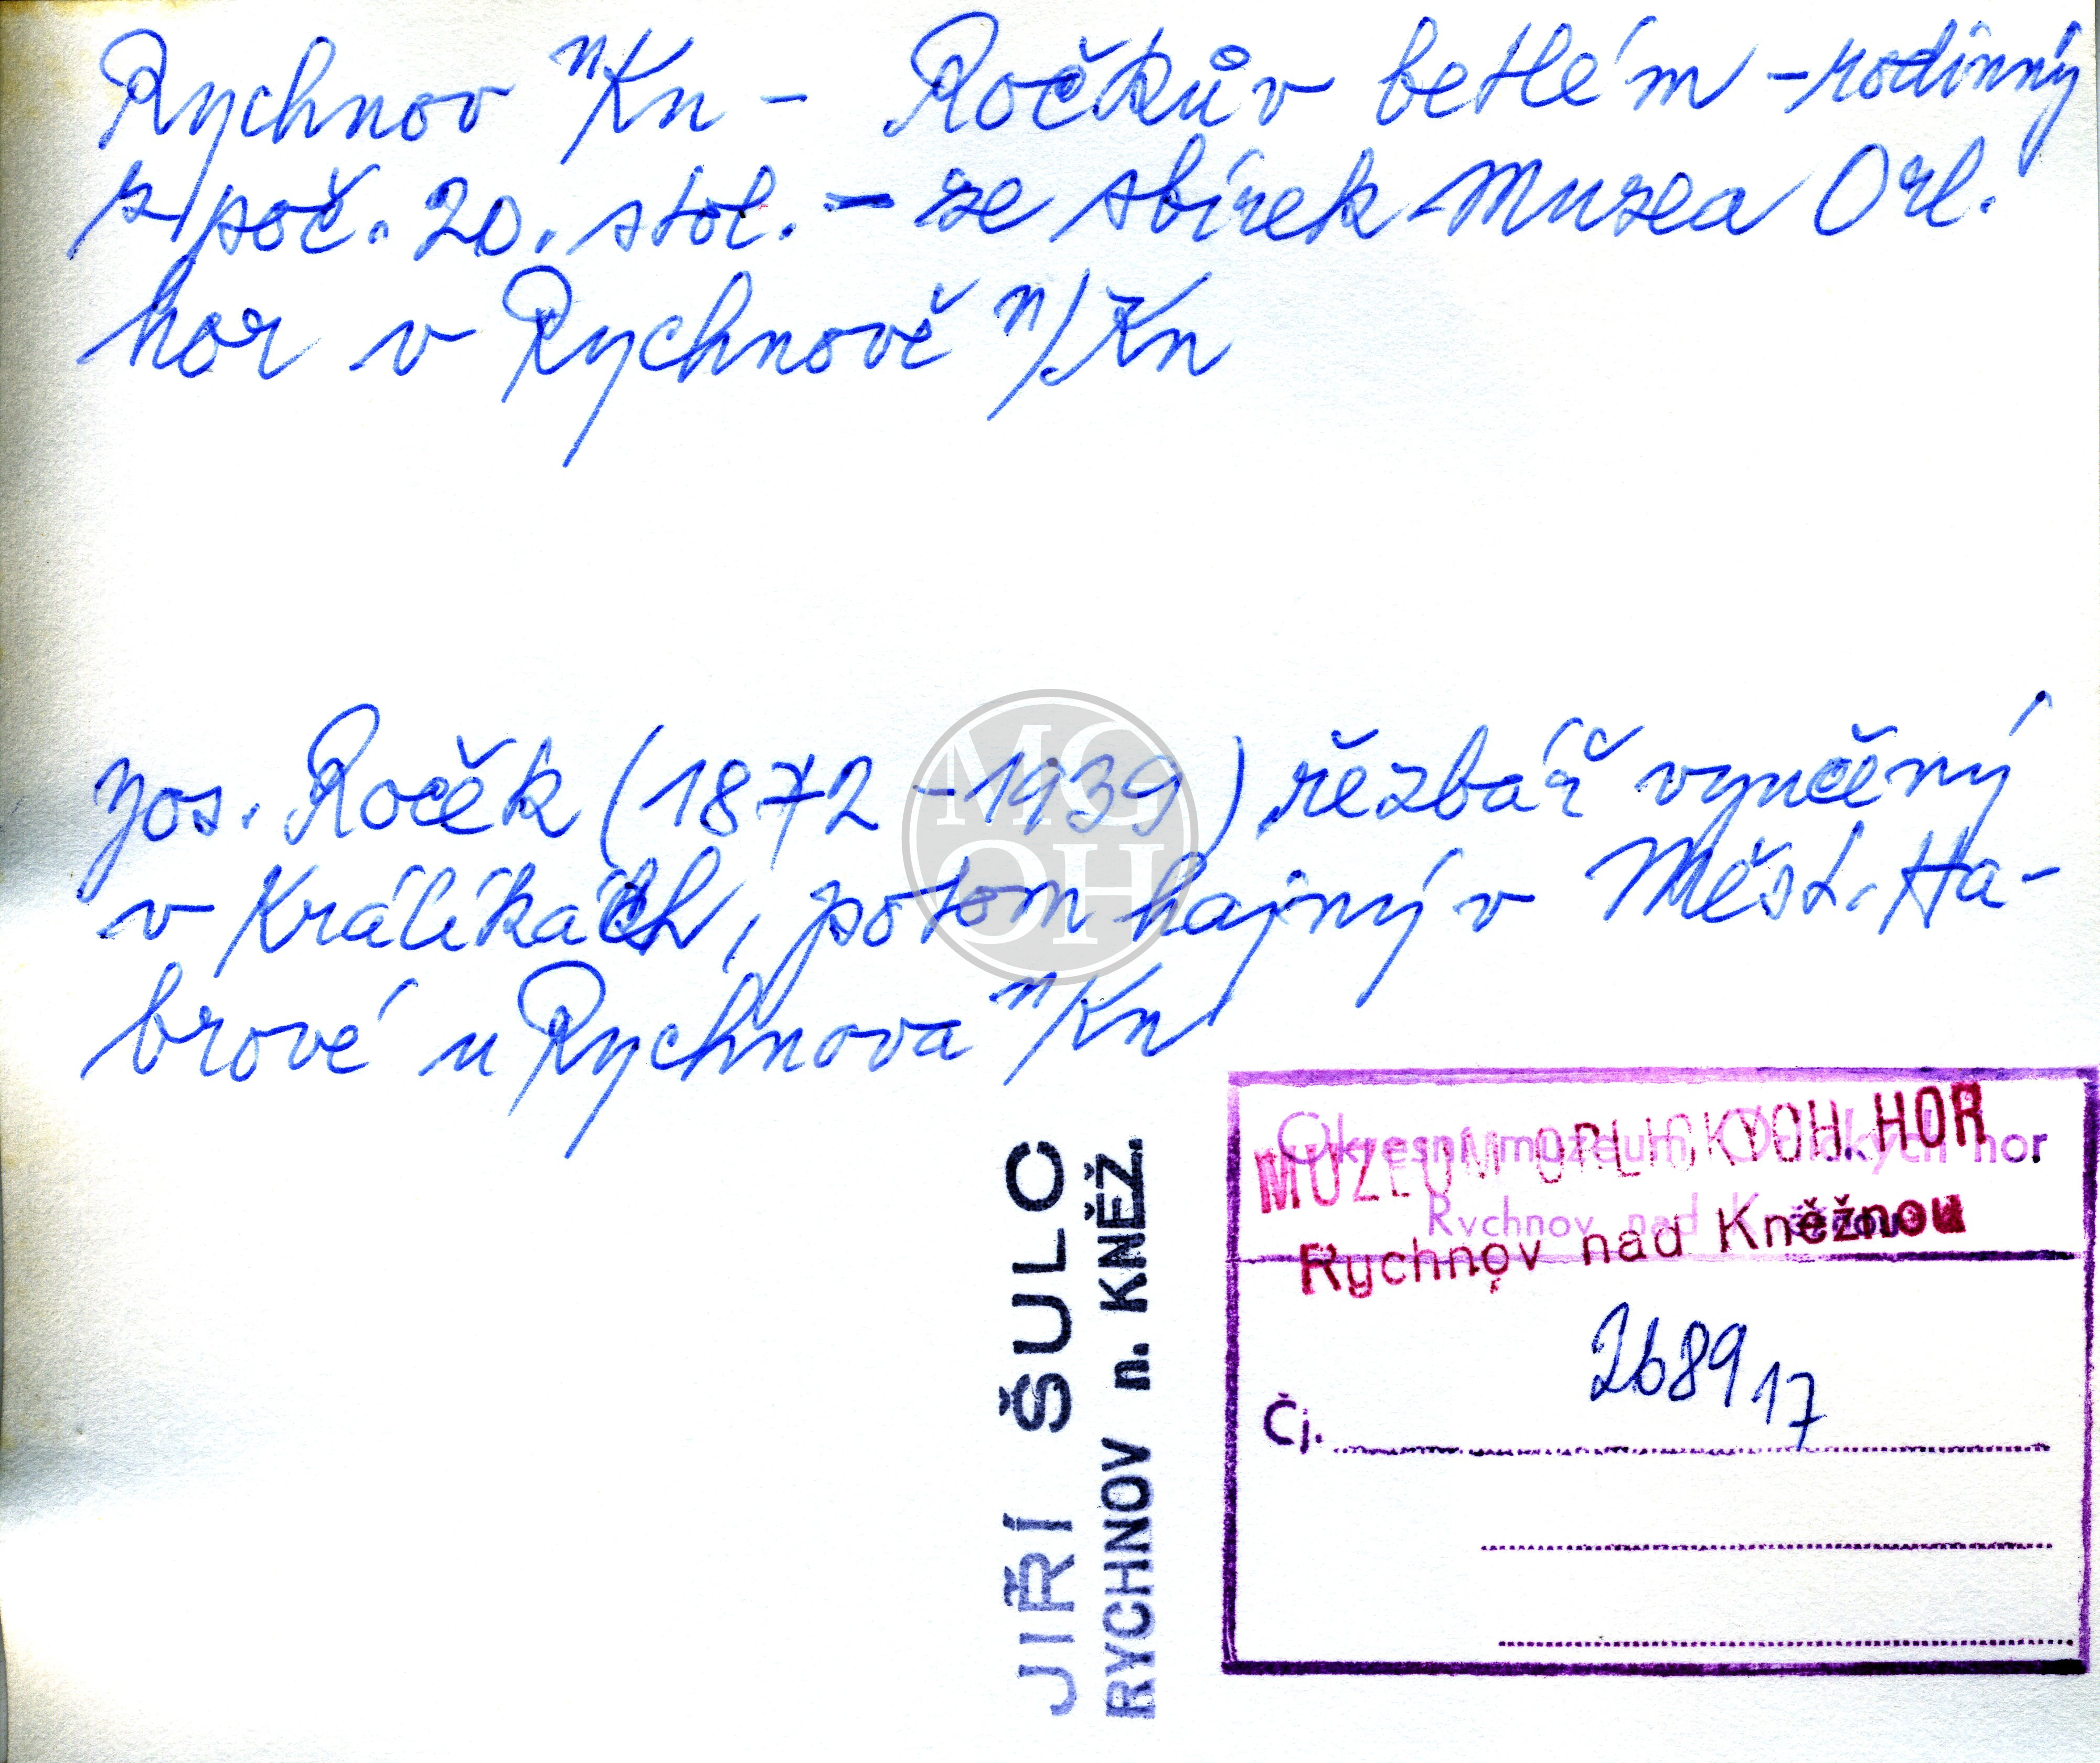 Rychnov n/Kn - Ročkův betlém - rodinný
z poč. 20. stol. - ze sbírek Muzea Orl.
hor v Rychnově n/Kn
Jos. Roček (1872 - 1939) řezbář vyučený
v Králíkách, potom hajný v Měst. Ha-
brové u Rychnova n/Kn
MG
OH
JIŘÍ ŠULC
RYCHNOV n. KNĚŽ.
Okresní muzeum Orlických hor
Rychnov nad
MUZEUM ORLICKÝCH HOR
Rychnov nad Kněžnou
2689 17
Čj.